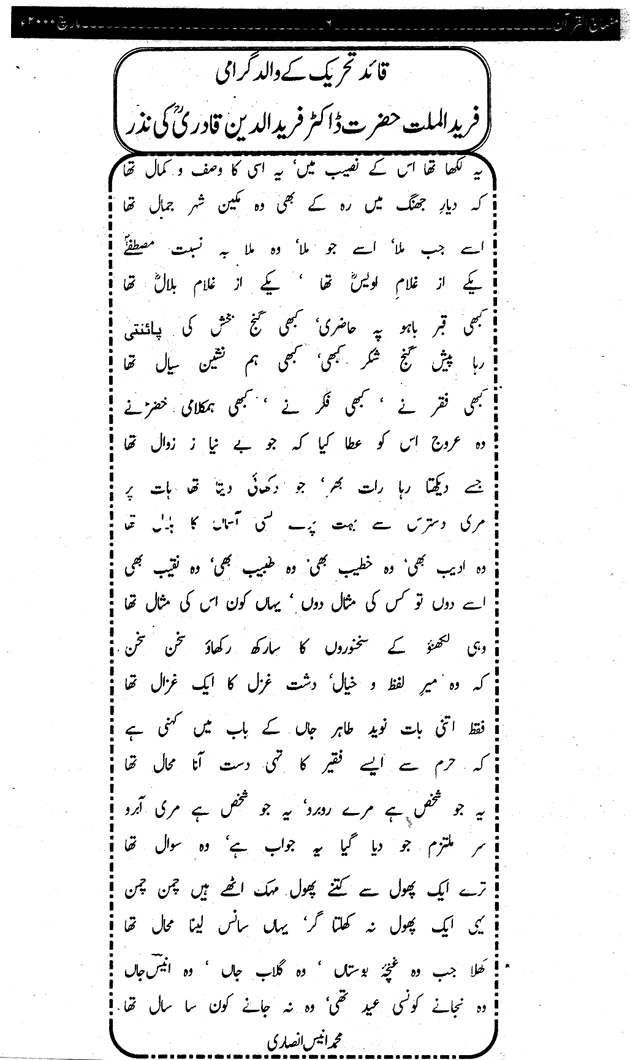 منہاج القرآن ۶ مارچ ۲۰۰۰ء
قائد تحریک کے والد گرامی
فرید الملت حضرت ڈاکٹر فرید الدین قادریؒ کی نذر
یہ لکھا تھا اس کے نصیب میں، یہ اسی کا وصف و کمال تھا
کہ دیارِ جھنگ میں رہ کے بھی وہ مکین شہر جمال تھا
اسے جب ملا، اسے جو ملا، وہ ملا بہ نسبت مصطفیٰؐ
یکے از غلامِ اویسؓ تھا ، یکے از غلام بلالؓ تھا
کبھی قبر باہو پہ حاضری، کبھی گنج بخش کی پائنتی
رہا پیش گنج شکر کبھی، کبھی ہم نشین سیال تھا
کبھی فقر نے ، کبھی فکر نے ، کبھی ہمکلامی خضرؑ نے
وہ عروج اس کو عطا کیا کہ جو بے نیاز زوال تھا
جسے دیکھتا رہا رات بھر، جو دکھائی دیتا تھا ہات پر
مری دسترس سے بہت پرے کسی آسماں کا ہلال تھا
وہ ادیب بھی، وہ خطیب بھی، وہ طبیب بھی، وہ نقیب بھی
اسے دوں تو کس کی مثال دوں، یہاں کون اس کی مثال تھا
وہی لکھنؤ کے سخنوروں کا سارکھ رکھاؤ سخن سخن
کہ وہ میرِ لفظ و خیال، دشت غزل کا ایک غزال تھا
فقط اتنی بات نوید طاہر جاں کے باب میں کہنی ہے
کہ حرم سے ایسے فقیر کا تہی دست آنا محال تھا
یہ جو شخص ہے مرے روبرو، یہ جو شخص ہے مری آبرو
سر ملتزم جو دیا گیا یہ جواب ہے، وہ سوال تھا
ترے ایک پھول سے کتنے پھول مہک اٹھے ہیں چمن چمن
یہی ایک پھول نہ کھلتا گر، یہاں سانس لینا محال تھا
کھلا جب وہ غنچۂ بوستاں ، وہ گلاب جاں ، وہ انیس جاں
وہ نجانے کونسی عید تھی، وہ نہ جانے کون سا سال تھا
محمد انیس انصاری